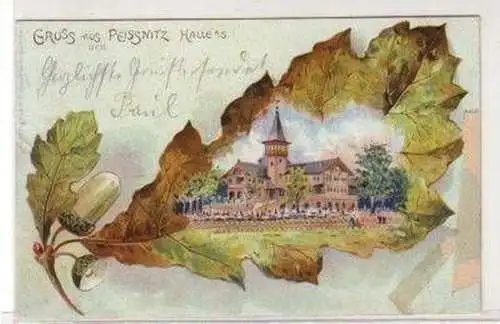 GRUSS AUS DER PEISSNITZ HALLE A/S
Herzlichste Grüße sendet
Paul